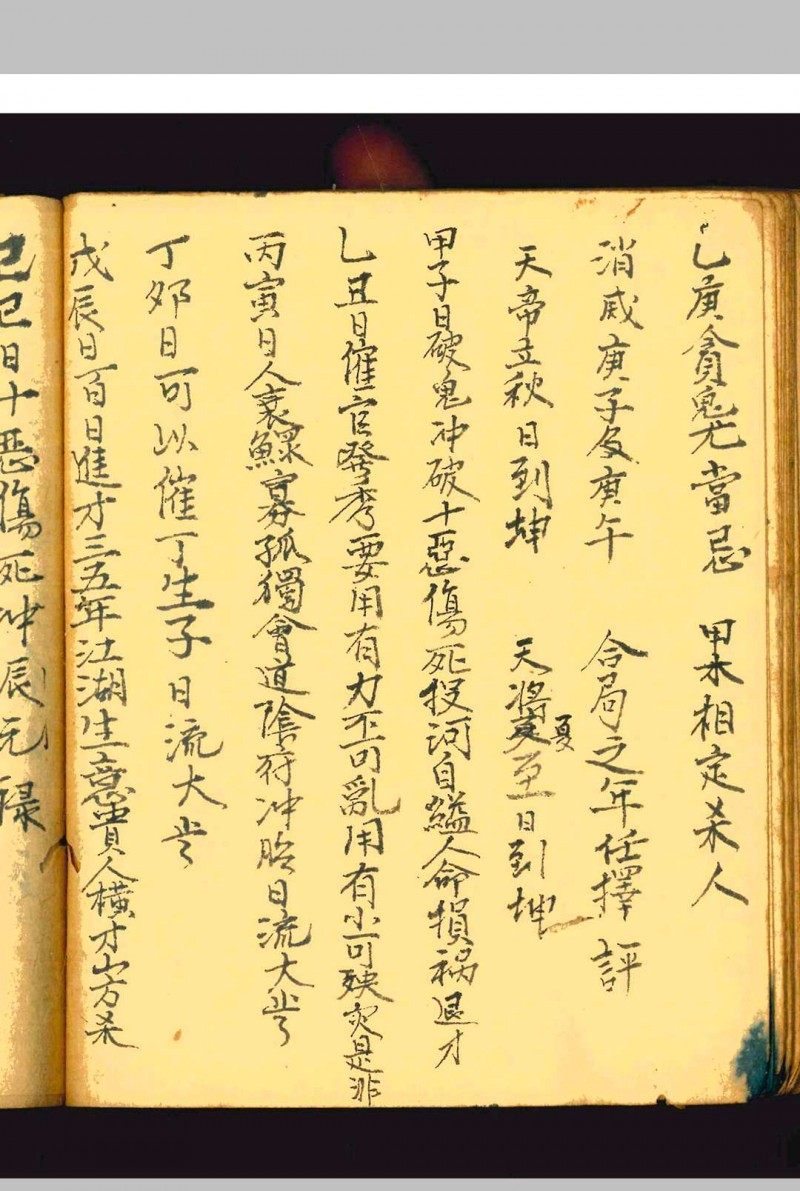 乙庚貪鬼尤當忌　甲木相定杀人
消威庚子及庚午　合局之年任擇評
天帝立秋日到坤　天將夏至日到坤
甲子日破鬼冲破十惡傷死投河自縊人命損禍退才
乙丑日催官發秀要用有力不可亂用有小可殃灾是非
丙寅日人衰鰥寡孤獨會道陰符冲胎日流大
丁夘日可以催丁生子日流大
戊辰日百日進才三五年江湖生意貴人橫才山方杀
己巳日十惡傷死冲辰元祿